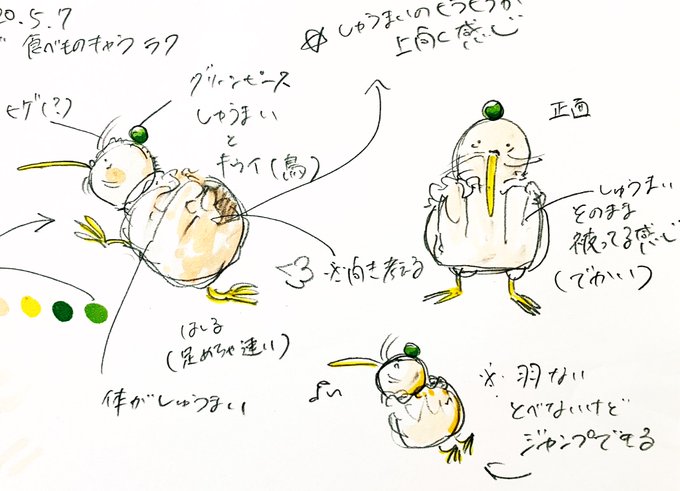 20.5.7
食べものキャラ ラフ
☆ しゅうまいの
上向く感じ
ヒゲ(?)
グリーンピース
しゅうまい
と
キウイ(鳥)
正面
しゅうまい
そのまま
被ってる感じ
(でかい)
向き考える
はしる
(足めちゃ速い)
体がしゅうまい
※ 羽ない
とべないけど
ジャンプできる